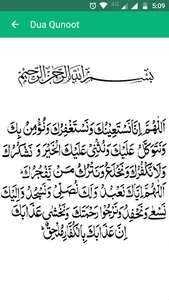 4G 5:09
Dua Qunoot
بِسْمِ اللهِ الرَّحْمٰنِ الرَّحِيْمِ
اَللّٰهُمَّ اِنَّا نَسْتَعِيْنُكَ وَنَسْتَغْفِرُكَ وَنُؤْمِنُ بِكَ
وَنَتَوَكَّلُ عَلَيْكَ وَنُثْنِيْ عَلَيْكَ الْخَيْرَ وَنَشْكُرُكَ
وَلَا نَكْفُرُكَ وَنَخْلَعُ وَنَتْرُكُ مَنْ يَّفْجُرُكَ
اَللّٰهُمَّ اِيَّاكَ نَعْبُدُ وَلَكَ نُصَلِّيْ وَنَسْجُدُ وَاِلَيْكَ
نَسْعٰى وَنَحْفِدُ وَنَرْجُوْا رَحْمَتَكَ وَنَخْشٰى عَذَابَكَ
اِنَّ عَذَابَكَ بِالْكُفَّارِ مُلْحِقٌ